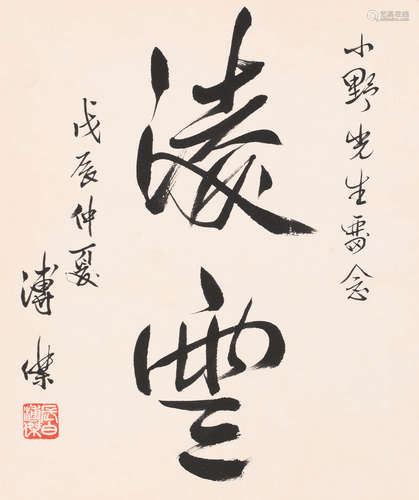 小野先生雷念
凌雲
戊辰仲夏
溥傑